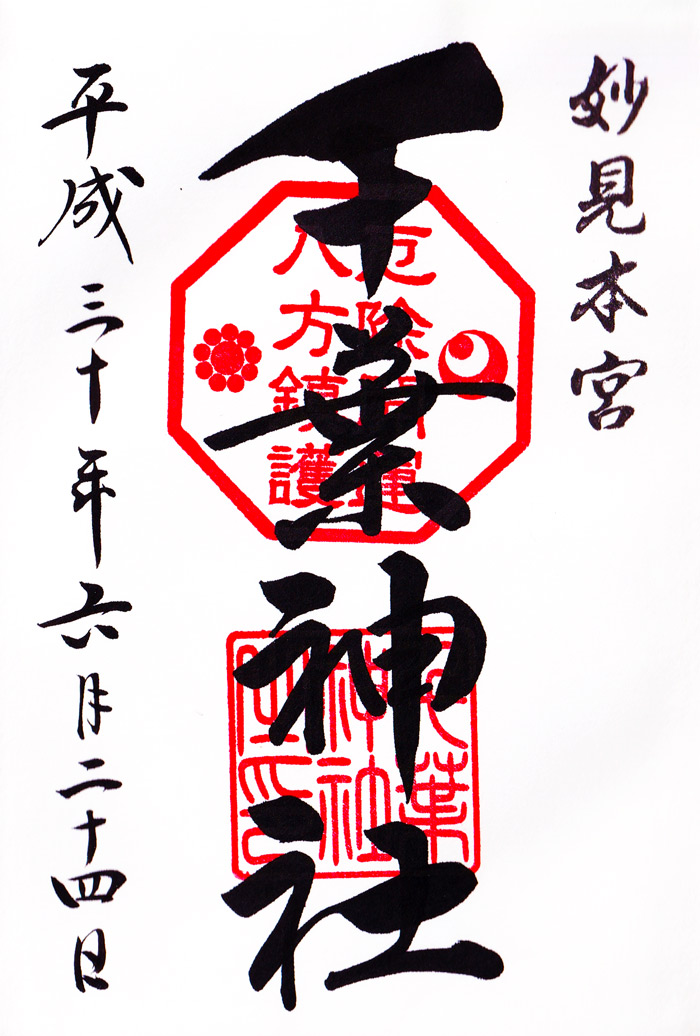 妙見本宮
千葉神社
厄除開運
八方鎮護
千葉
神社
之印
平成三十年六月二十四日